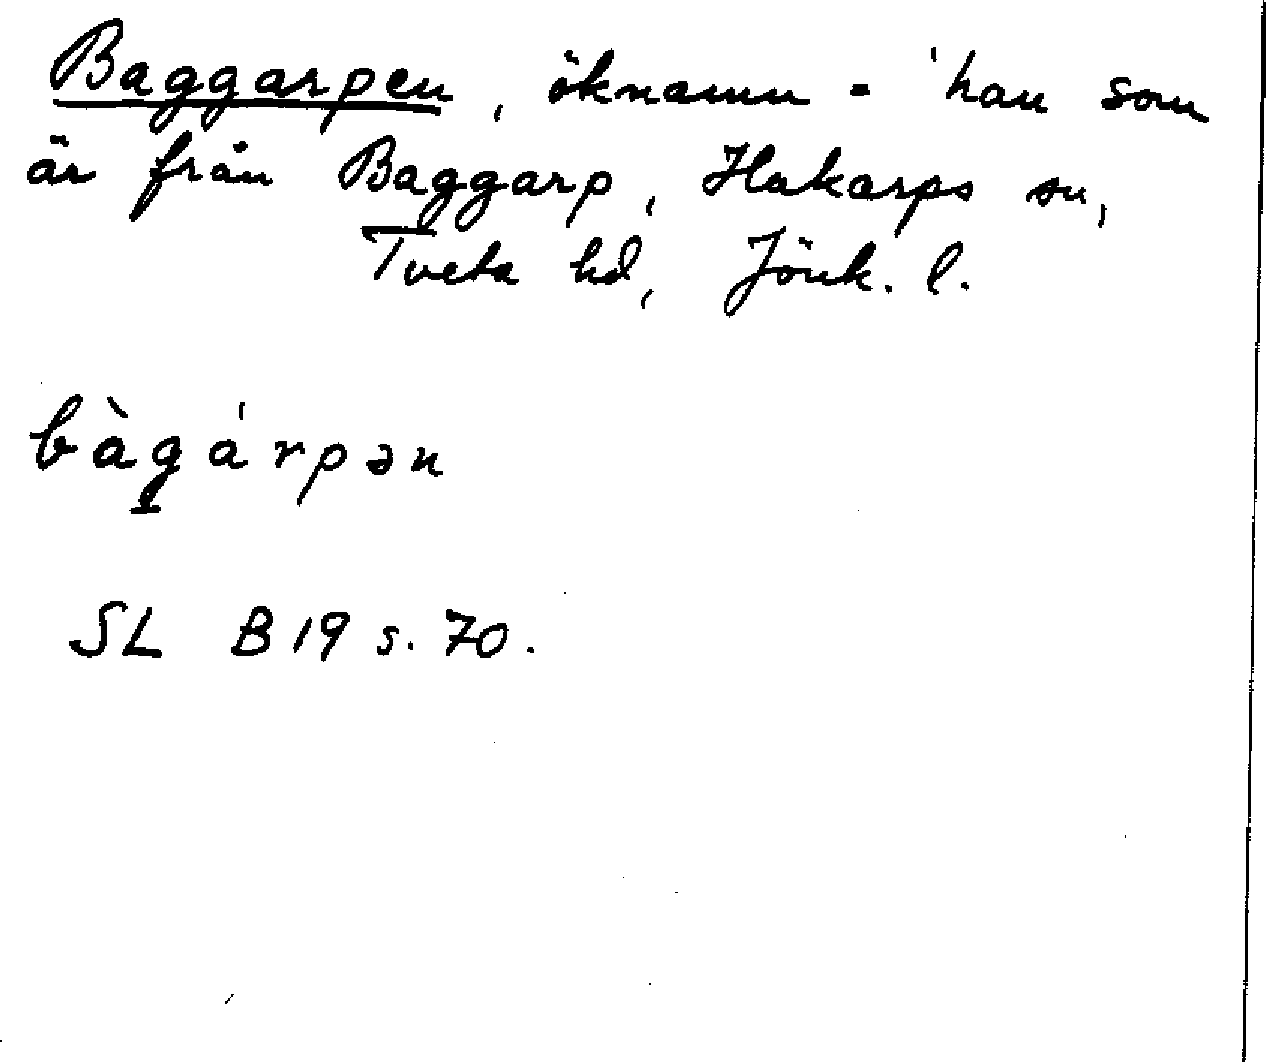 Baggarpen, öknamn = 'han som
är från Baggarp, Hakarps sn,
Tveta hd, Jönk. l.
bàgárpən
SL B19 s. 70.